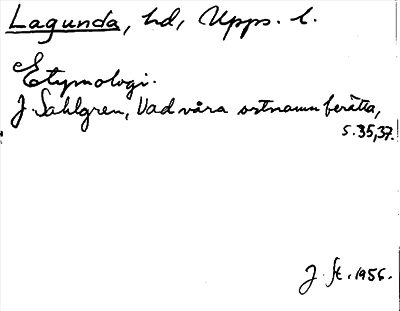 Lagunda, hd, Upps. l.
Etymologi.
J. Sahlgren, Vad våra ortnamn berätta,
s. 35, 37.
J. St. 1956.